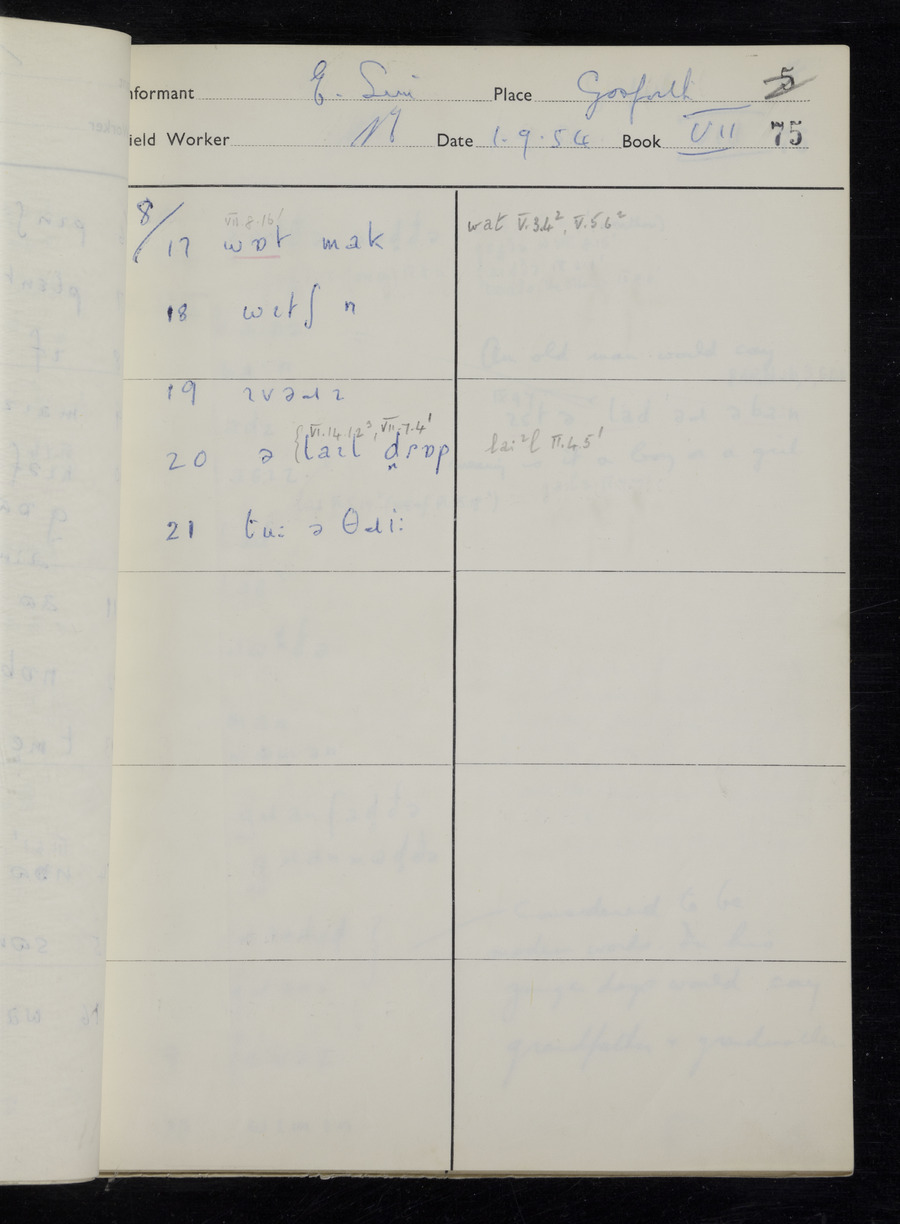 nformant E. Place Gosforth 5
ield Worker N Date 1.9.54 Book VII 75
8/ VII.8.16/ wat V.3.4², V.5.6²
17 wɒt mak
18 wɪtʃ n
19 ɪvəɹɪ
VI.14.12³, VII.7.4¹
20 ə laɪl drɒp laiˑl II.4.5¹
21 tuː ə θɹiː